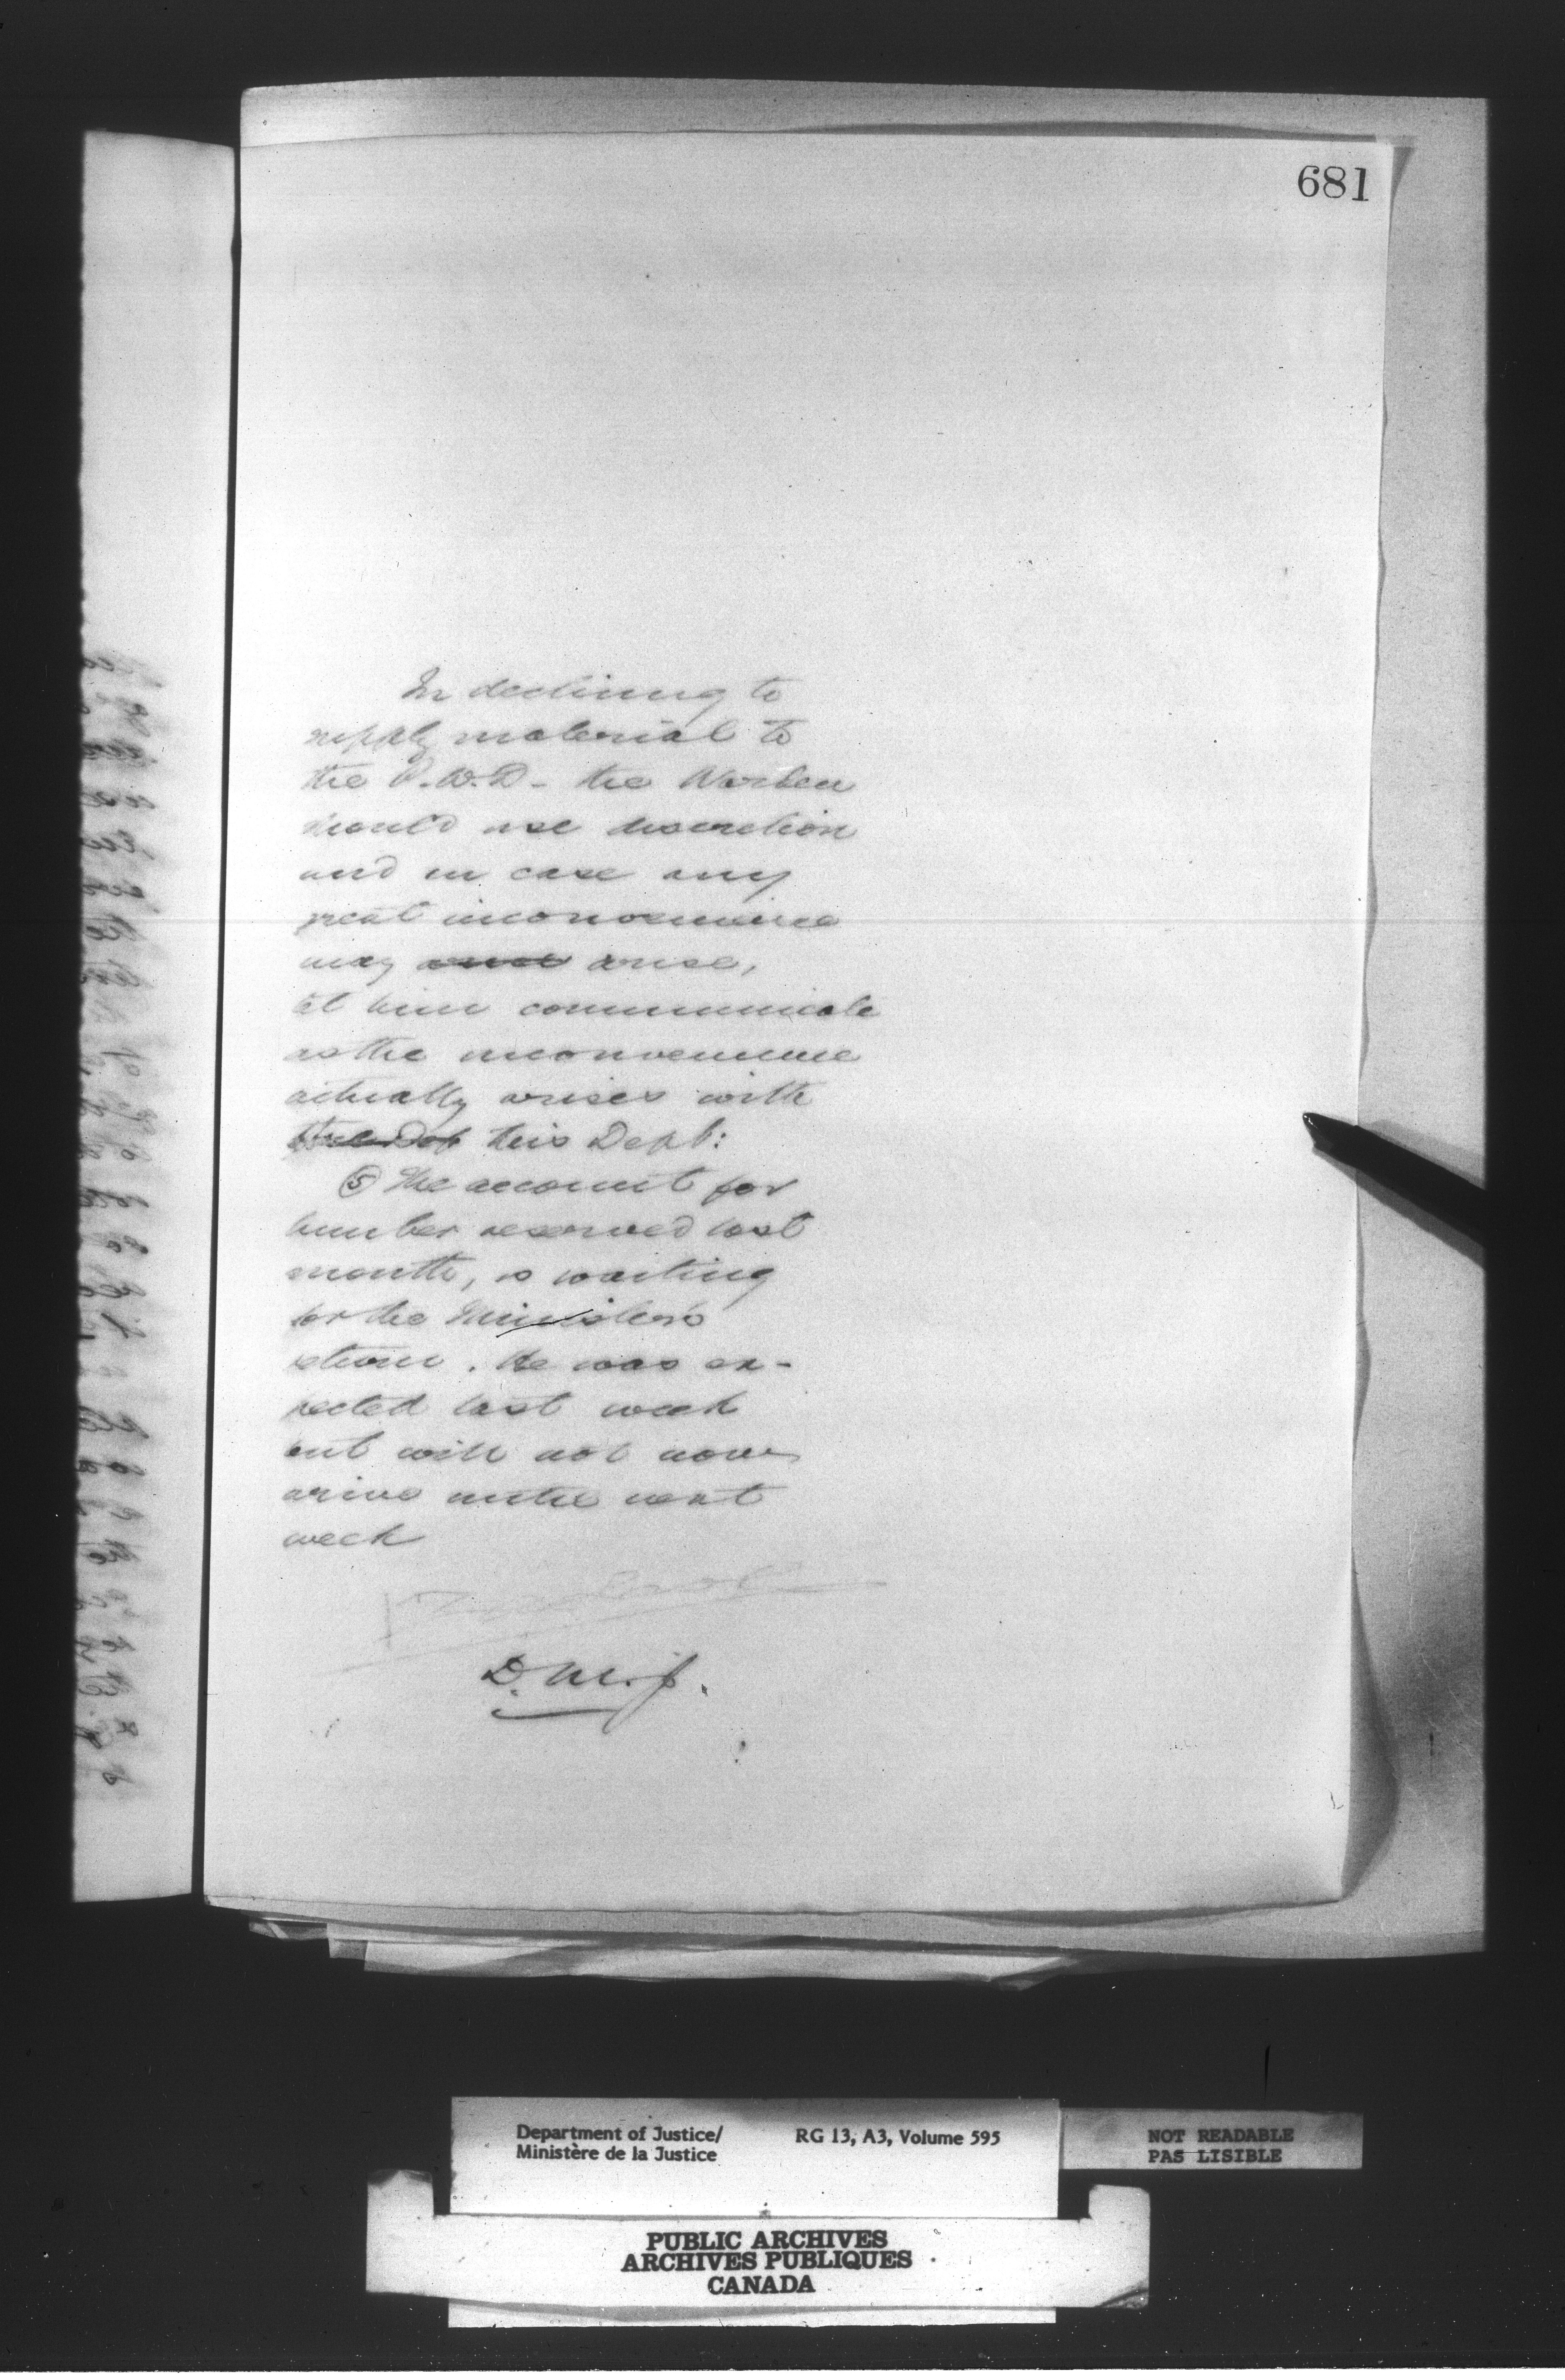 681
In declining to
supply material to
the P.W.D - the Warden
should use discretion
and in case any
great inconvenience
may arise,
let him communicate
as the inconvenience
actually arises with
the Dep this Dept:
⑤ The account for
lumber received last
month, is waiting
for the Minister's
return. He was ex-
pected last week
but will not now
arive until next
week
D.M.J.
Department of Justice/ RG 13, A3, Volume 595
Ministère de la Justice
NOT READABLE
PAS LISIBLE
PUBLIC ARCHIVES
ARCHIVES PUBLIQUES
CANADA